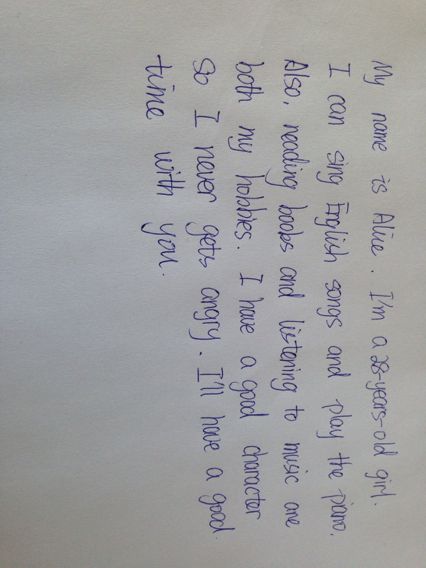 My name is Alice. I'm a 28-years-old girl.
I can sing English songs and play the piano.
Also, reading books and listening to music are
both my hobbies. I have a good character
so I never gets angry. I'll have a good
time with you.